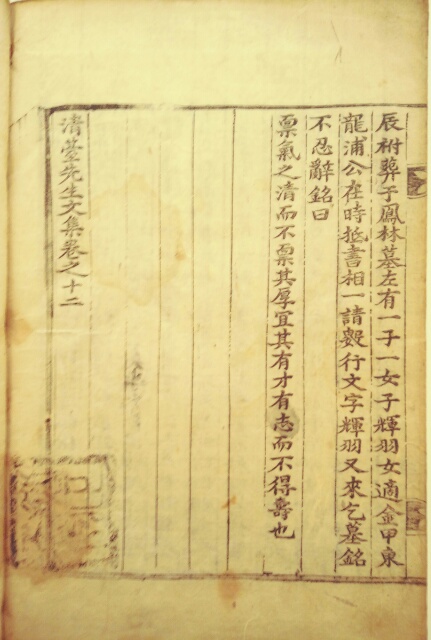 辰祔葬于鳳林墓左有一子一女子輝羽女適金甲東
龍浦公在時抵書相一請數行文字輝羽又來乞墓銘
不忍辭銘曰
禀氣之清而不禀其厚宜其有才有志而不得壽也
清臺先生文集卷之十二